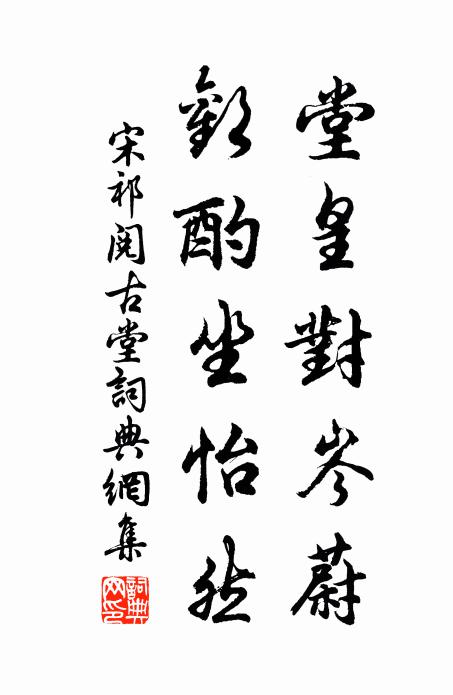 堂皇對岑蔚
歡酌坐怡然
宋祁閱古堂詞典網集
詞典網印